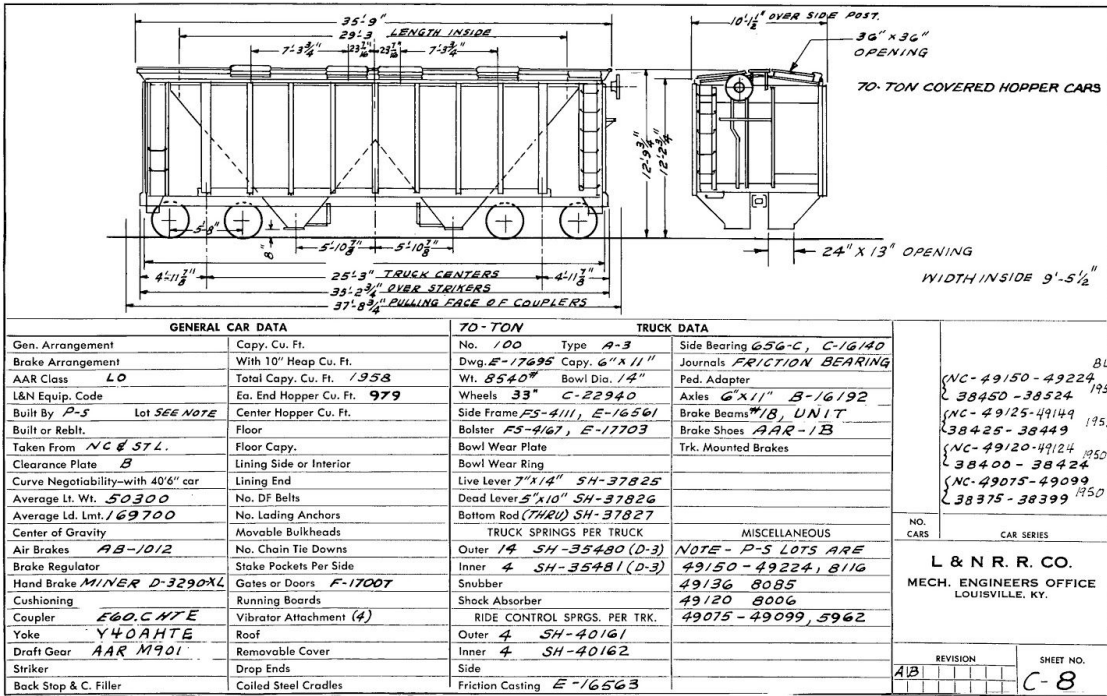 35'-9"
29'-3 LENGTH INSIDE
7'-3 3/4" 23 7/16" 23 7/16" 7'-3 3/4"
10'-1 1/2" OVER SIDE POST.
36" X 36"
OPENING
70-TON COVERED HOPPER CARS
12'-9 3/4"
12'-2 3/4"
5'-8"
8"
5'-10 7/8" 5'-10 7/8"
24" X 13" OPENING
4'-11 7/8" 25'-3" TRUCK CENTERS 4'-11 7/8"
WIDTH INSIDE 9'-5 1/2"
35'-2 3/4" OVER STRIKERS
37'-8 3/4" PULLING FACE OF COUPLERS
GENERAL CAR DATA
Gen. Arrangement
Brake Arrangement
AAR Class LO
L&N Equip. Code
Built By P-S Lot SEE NOTE
Built or Reblt.
Taken From NC & STL.
Clearance Plate B
Curve Negotiability-with 40'6" car
Average Lt. Wt. 50300
Average Ld. Lmt. 169700
Center of Gravity
Air Brakes AB-1012
Brake Regulator
Hand Brake MINER D-3290-XL
Cushioning
Coupler E60.CHTE
Yoke Y40AHTE
Draft Gear AAR M901
Striker
Back Stop & C. Filler
Capy. Cu. Ft.
With 10" Heap Cu. Ft.
Total Capy. Cu. Ft. 1958
Ea. End Hopper Cu. Ft. 979
Center Hopper Cu. Ft.
Floor
Floor Capy.
Lining Side or Interior
Lining End
No. DF Belts
No. Lading Anchors
Movable Bulkheads
No. Chain Tie Downs
Stake Pockets Per Side
Gates or Doors F-1700T
Running Boards
Vibrator Attachment (4)
Roof
Removable Cover
Drop Ends
Coiled Steel Cradles
70-TON TRUCK DATA
No. 100 Type A-3
Dwg. E-17695 Capy. 6" X 11"
Wt. 8540# Bowl Dia. 14"
Wheels 33" C-22940
Side Frame FS-4111, E-16561
Bolster FS-4167, E-17703
Bowl Wear Plate
Bowl Wear Ring
Live Lever 7"X14" SH-37825
Dead Lever 5"X10" SH-37826
Bottom Rod (THRU) SH-37827
TRUCK SPRINGS PER TRUCK
Outer 14 SH-35480 (D-3)
Inner 4 SH-35481 (D-3)
Snubber
Shock Absorber
RIDE CONTROL SPRGS. PER TRK.
Outer 4 SH-40161
Inner 4 SH-40162
Side
Friction Casting E-16563
Side Bearing 656-C, C-16140
Journals FRICTION BEARING
Ped. Adapter
Axles 6"X11" B-16192
Brake Beams #18, UNIT
Brake Shoes AAR-1B
Trk. Mounted Brakes
MISCELLANEOUS
NOTE - P-S LOTS ARE
49150-49224, 8116
49136 8085
49120 8006
49075-49099, 5962
NC-49150-49224
38450-38524
NC-49125-49149
38425-38449
NC-49120-49124
38400-38424 1950
NC-49075-49099
38375-38399 1950
NO. CARS CAR SERIES
L & N R. R. CO.
MECH. ENGINEERS OFFICE
LOUISVILLE, KY.
REVISION
A B
SHEET NO.
C-8